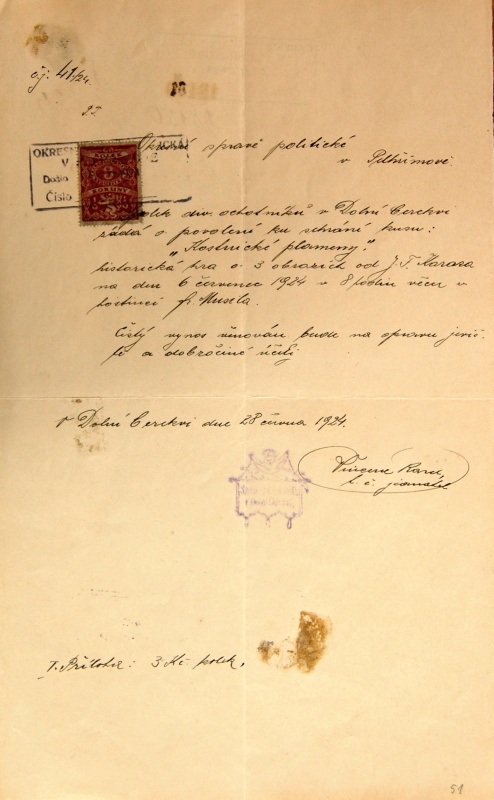 č.j. 41/24.
Okresní správě politické
v Pelhřimově.
OKRESNÍ
V
Došlo
Číslo
KOLEK
3
KORUNY
div. ochotníků v Dolní Cerekvi
žádá o povolení ku sehrání kusu:
"Kostnické plameny"
historická hra o 3 obrazích od J. F. Karasa
na den 6 červenec 1924 v 8 hodin večer v
hostinci fr. Musila.
Čistý výnos věnován bude na správu jeviš-
tě a dobročiné účely
V Dolní Cerekvi dne 28 června 1924.
Vincenc
t. č. jednatel
1. Příloha: 3 Kč kolek.
51